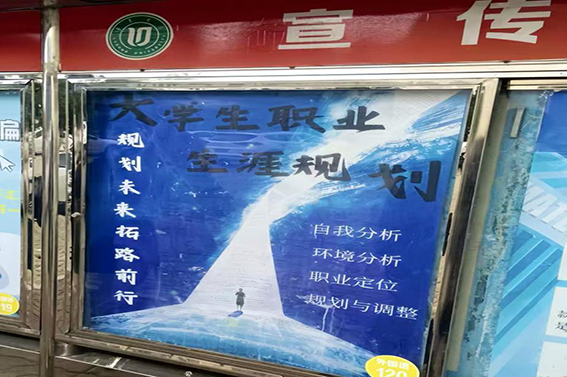 宣传
大学生职业
生涯规划
规划未来拓路前行
自我分析
环境分析
职业定位
规划与调整
120